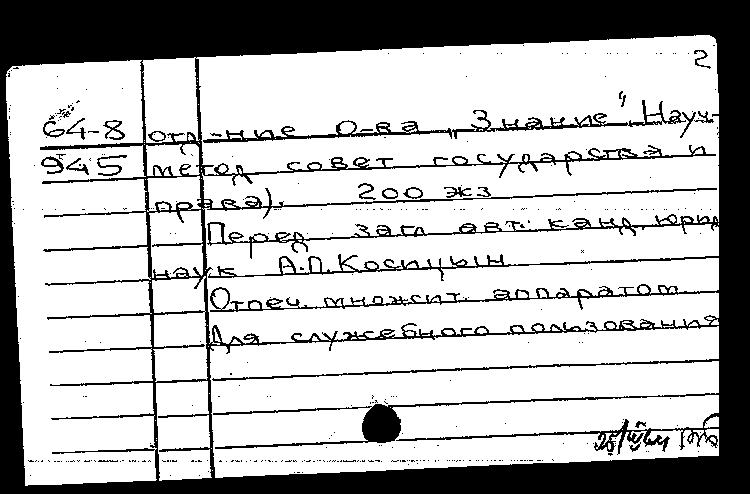 2
64-8 отд-ние о-ва "Знание". Науч.-
945 метод совет государства и
права). 200 экз
Перед загл авт: канд. юрид
наук А.П.Косицын
Отпеч. множит. аппаратом
Для служебного пользования